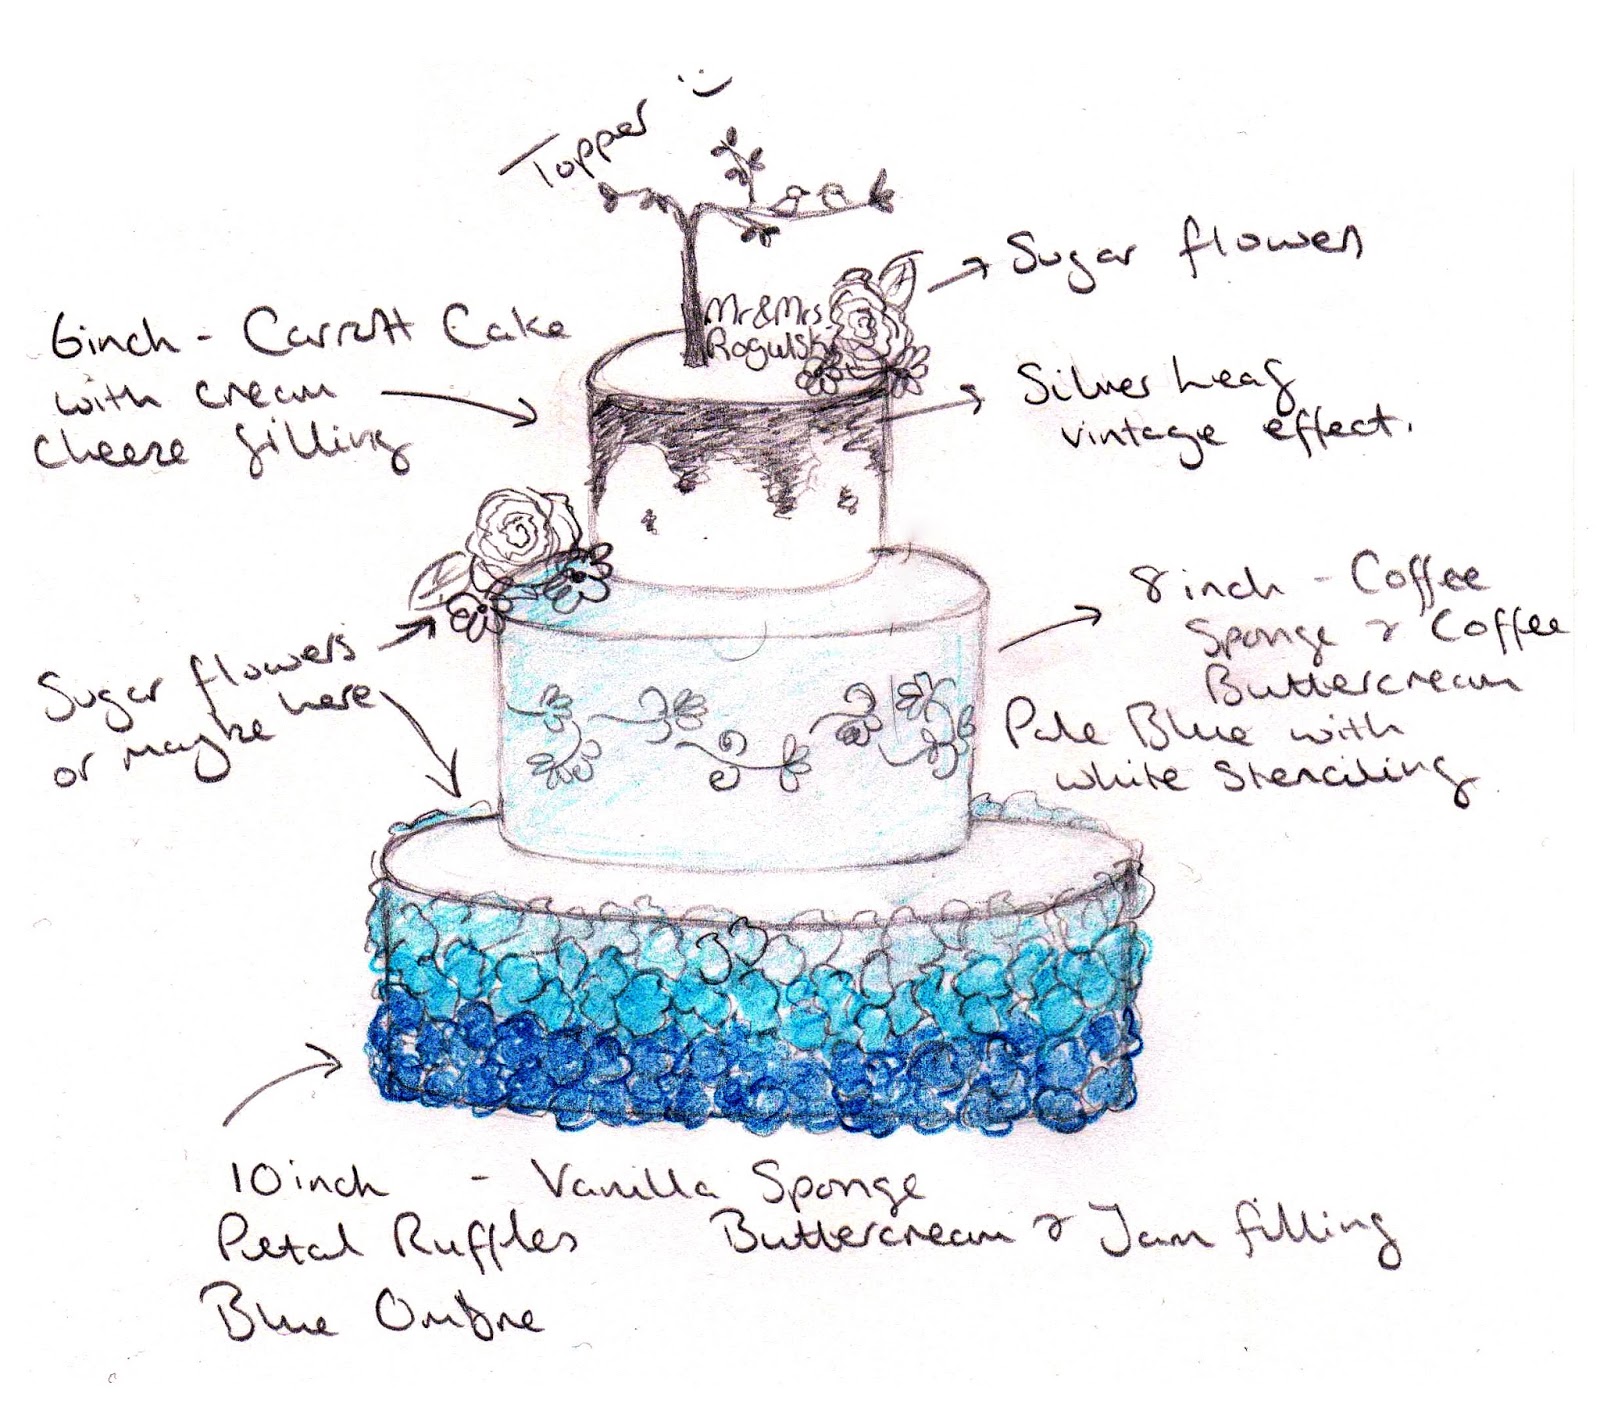 Topper
Mr & Mrs
Rogulski
Sugar flowers
6inch - Carrott Cake
with cream
cheese filling
Silver Leaf
vintage effect.
8inch - Coffee
Sponge & Coffee
Buttercream
Pale Blue with
white stenciling
Sugar flowers
or maybe here
10inch - Vanilla Sponge
Petal Ruffles Buttercream & Jam filling
Blue Ombre